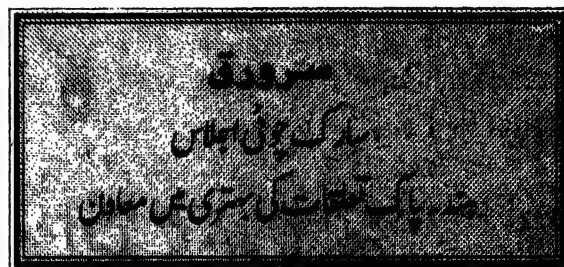 سرورق
سارک چوٹی اجلاس
ہند۔پاک تعلقات کی بہتری میں معاون